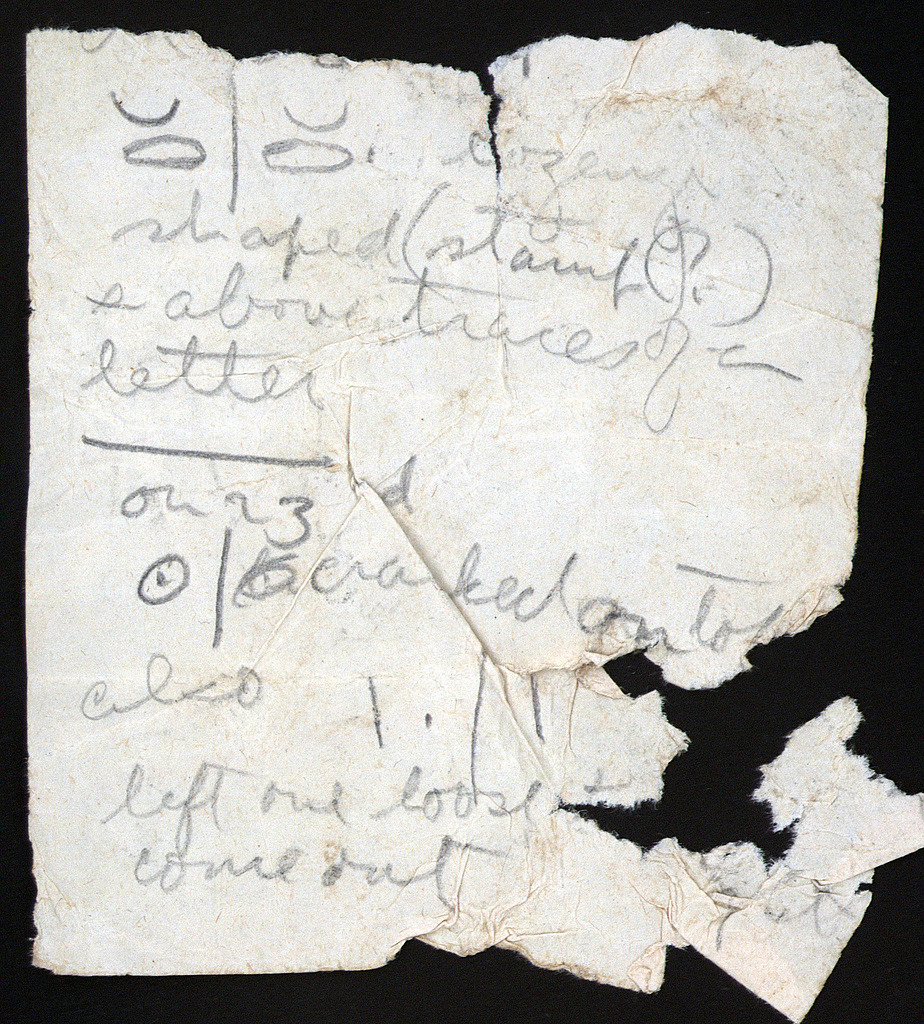 lozeng
shaped (stamp (?.)
& above traces of a
letter
on 23 d
cracked onto
also 1. | 1
left one loose +
come out